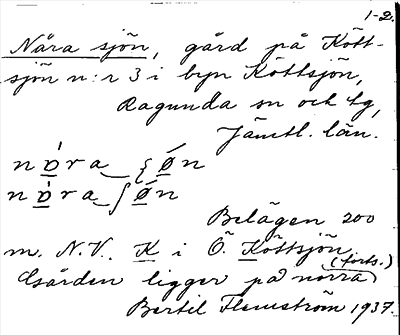 1-2.
Nåra sjön, gård på Kött-
sjön n:r 3 i byn Köttsjön,
Ragunda sn och tg,
Jämtl. län.
Belägen 200
m. N.V. K i Ö. Köttsjön
(forts.)
Gården ligger på norra
Bertil Flemström 1937.